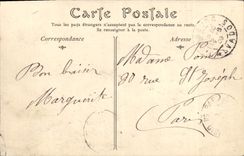 Carte Postale
Tous les pays étrangers n'acceptent pas la correspondance au recto.
Se renseigner à la poste.
Correspondance
Adresse
Bon baiser
Marguerite
Madame
rue St Joseph
Paris